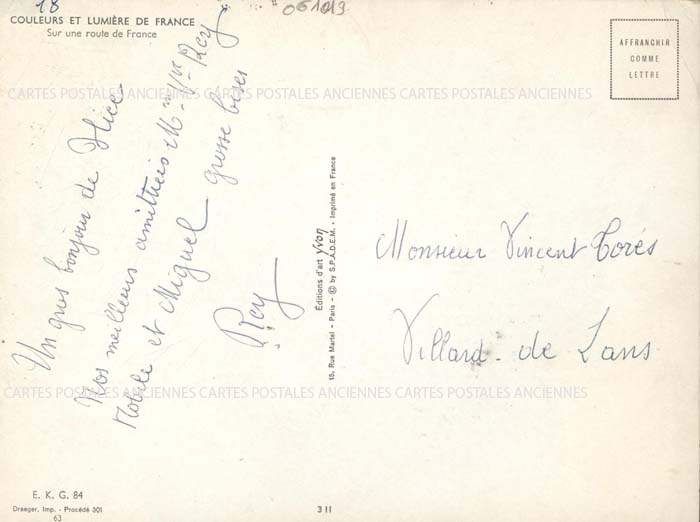 18
061019
COULEURS ET LUMIÈRE DE FRANCE
Sur une route de France
AFFRANCHIR
COMME
LETTRE
CARTES POSTALES ANCIENNES CARTES POSTALES ANCIENNES CARTES POSTALES ANCIENNES
Un gros bonjour de Nice
Nos meilleurs amitiers Mme Vve Rey
et Miguel grosse bises
Rey
Éditions d'art Yvon
15, Rue Martel - Paris - © by S.P.A.D.E.M. - Imprimé en France
Monsieur Vincent Torés
Villard-de Lans
CARTES POSTALES ANCIENNES CARTES POSTALES ANCIENNES CARTES POSTALES ANCIENNES
E. K. G. 84
Draeger, Imp. - Procédé 301
63
311